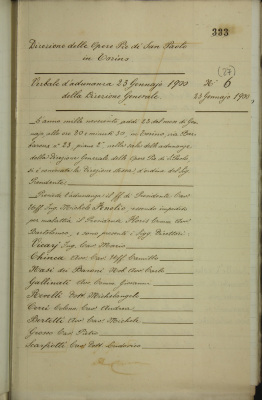 333
Direzione delle Opere Pie di San Paolo
in Torino
(27)
Verbale d'adunanza 23 Gennajo 1900 N° 6
della Direzione Generale. 23 Gennajo 1900
L'anno mille novecento, addì 23 del mese di Gen-
najo alle ore 20 e minuti 30, in Torino, via Bar-
baroux n° 23, piano 2°, nella sala delle adunanze
della Direzione Generale delle Opere Pie di S. Paolo,
si è la Direzione stessa d'ordine del Sig.
Presidente.
Presiede l'adunanza il ff. di Presidente Cav.
Uff. Ing. Michele essendo impedito
per malattia, il Presidente Comm. Avv.
Bartolomeo, e sono presenti i Sigg. Direttori:
Vicarj Ing. Cav. Mario
Chinea Avv. Cav. Uff. Camillo
Masi dei Baroni Avv. Carlo
Gallinati Avv. Comm. Giovanni
Rovelli Dott. Michelangelo
Cav. Andrea
Bertetti Avv. Cav. Michele
Cav. Pietro
Scarfiotti Cav. Dott. Lodovico